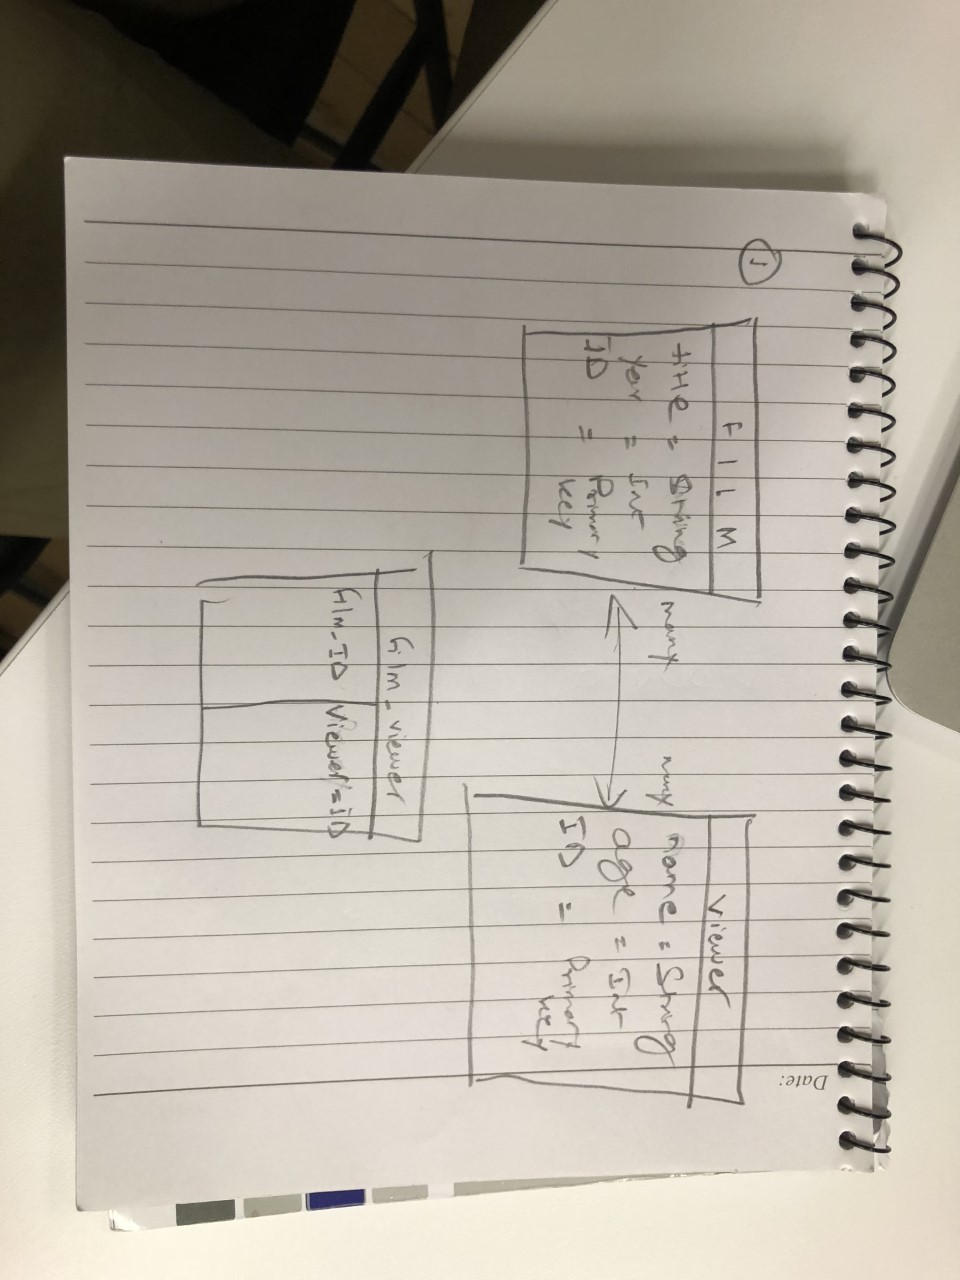 Date:
1
FILM
title = String
year = Int
ID = Primary
key
many many
Viewer
name = String
age = Int
ID = Primary
key
film_viewer
film_ID
Viewer_ID